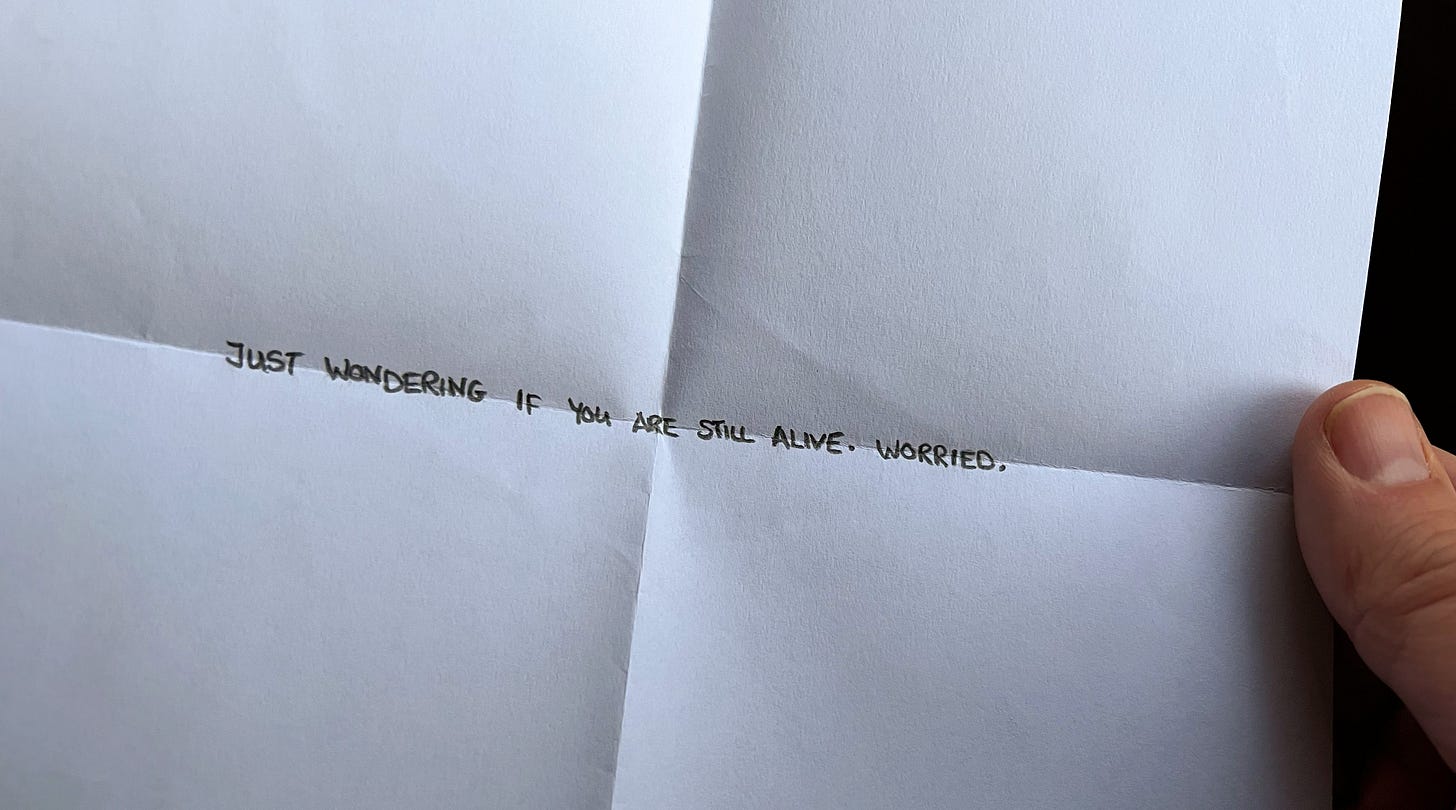 JUST WONDERING IF YOU ARE STILL ALIVE. WORRIED.